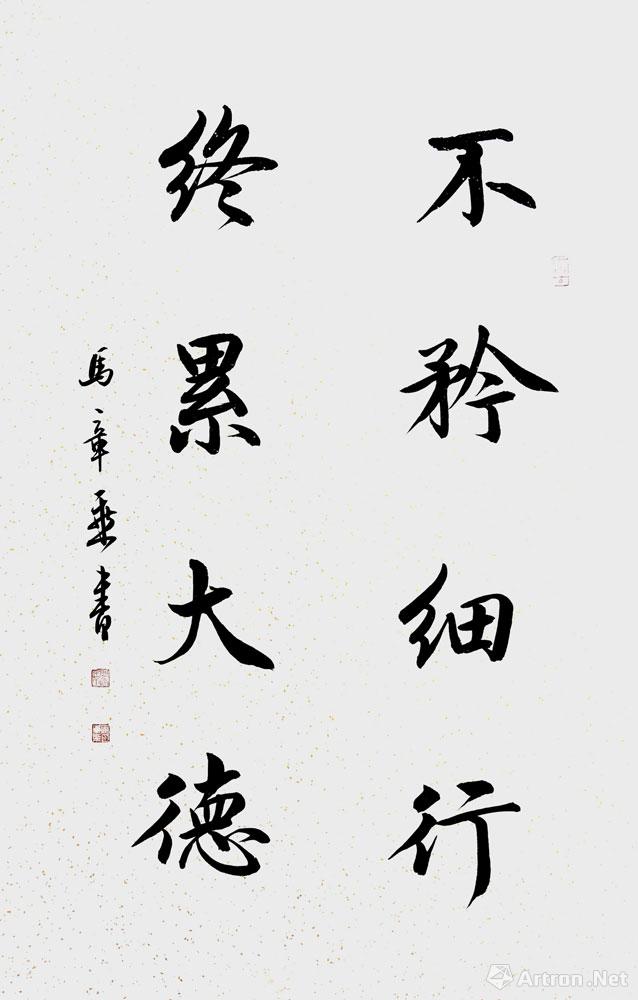 不矜细行
终累大德
馬章乘書
Artron.Net